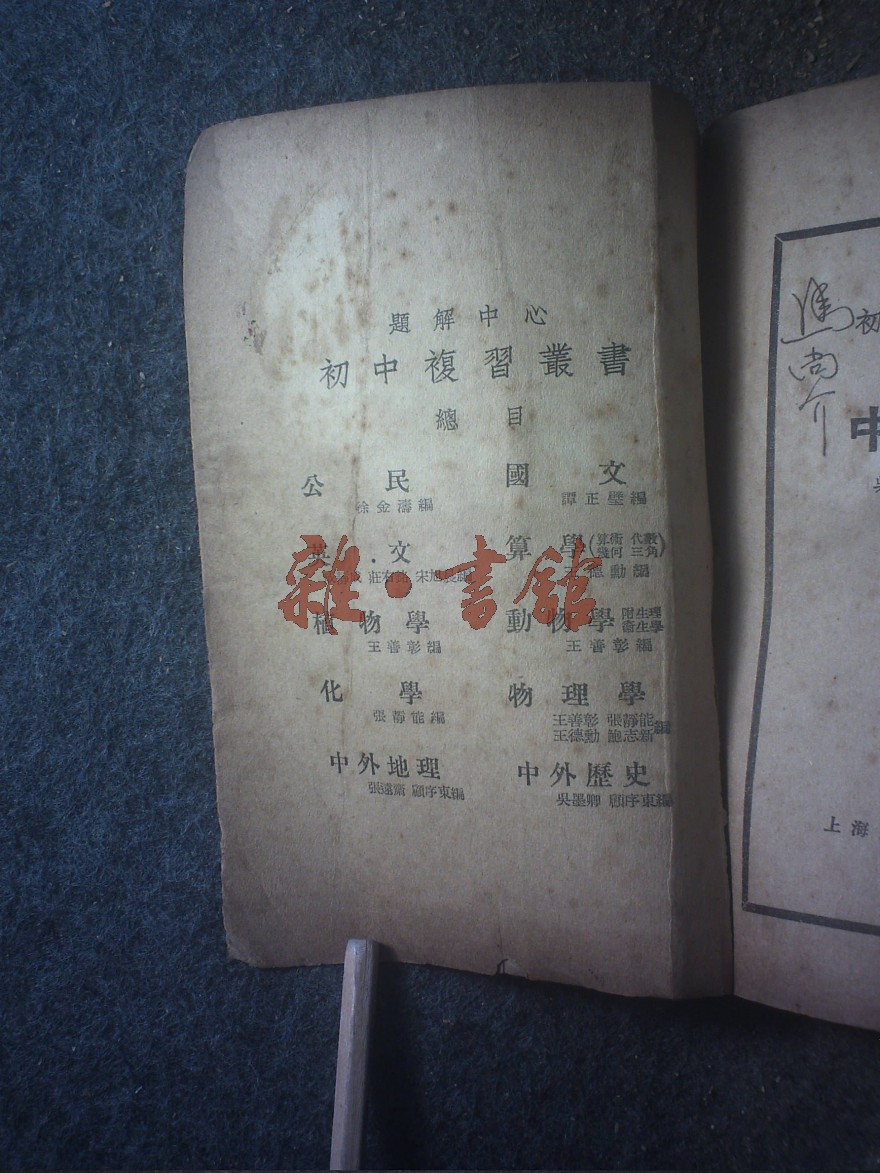 題解中心
初中複習叢書
總目
公民 國文
徐金濤編 譚正璧編
英文 算學(算術 代數 幾何 三角)
莊有銘 宋旭晨編 王德勳編
植物學 動物學 附生理衛生學
王善彰編 王善彰編
化學 物理學
張靜能編 王善彰 張靜能 王德勳 鮑志新編
中外地理 中外歷史
張遠蔭 顧序東編 吳墨卿 顧序東編
雜·書館
初
尚介
中
上海